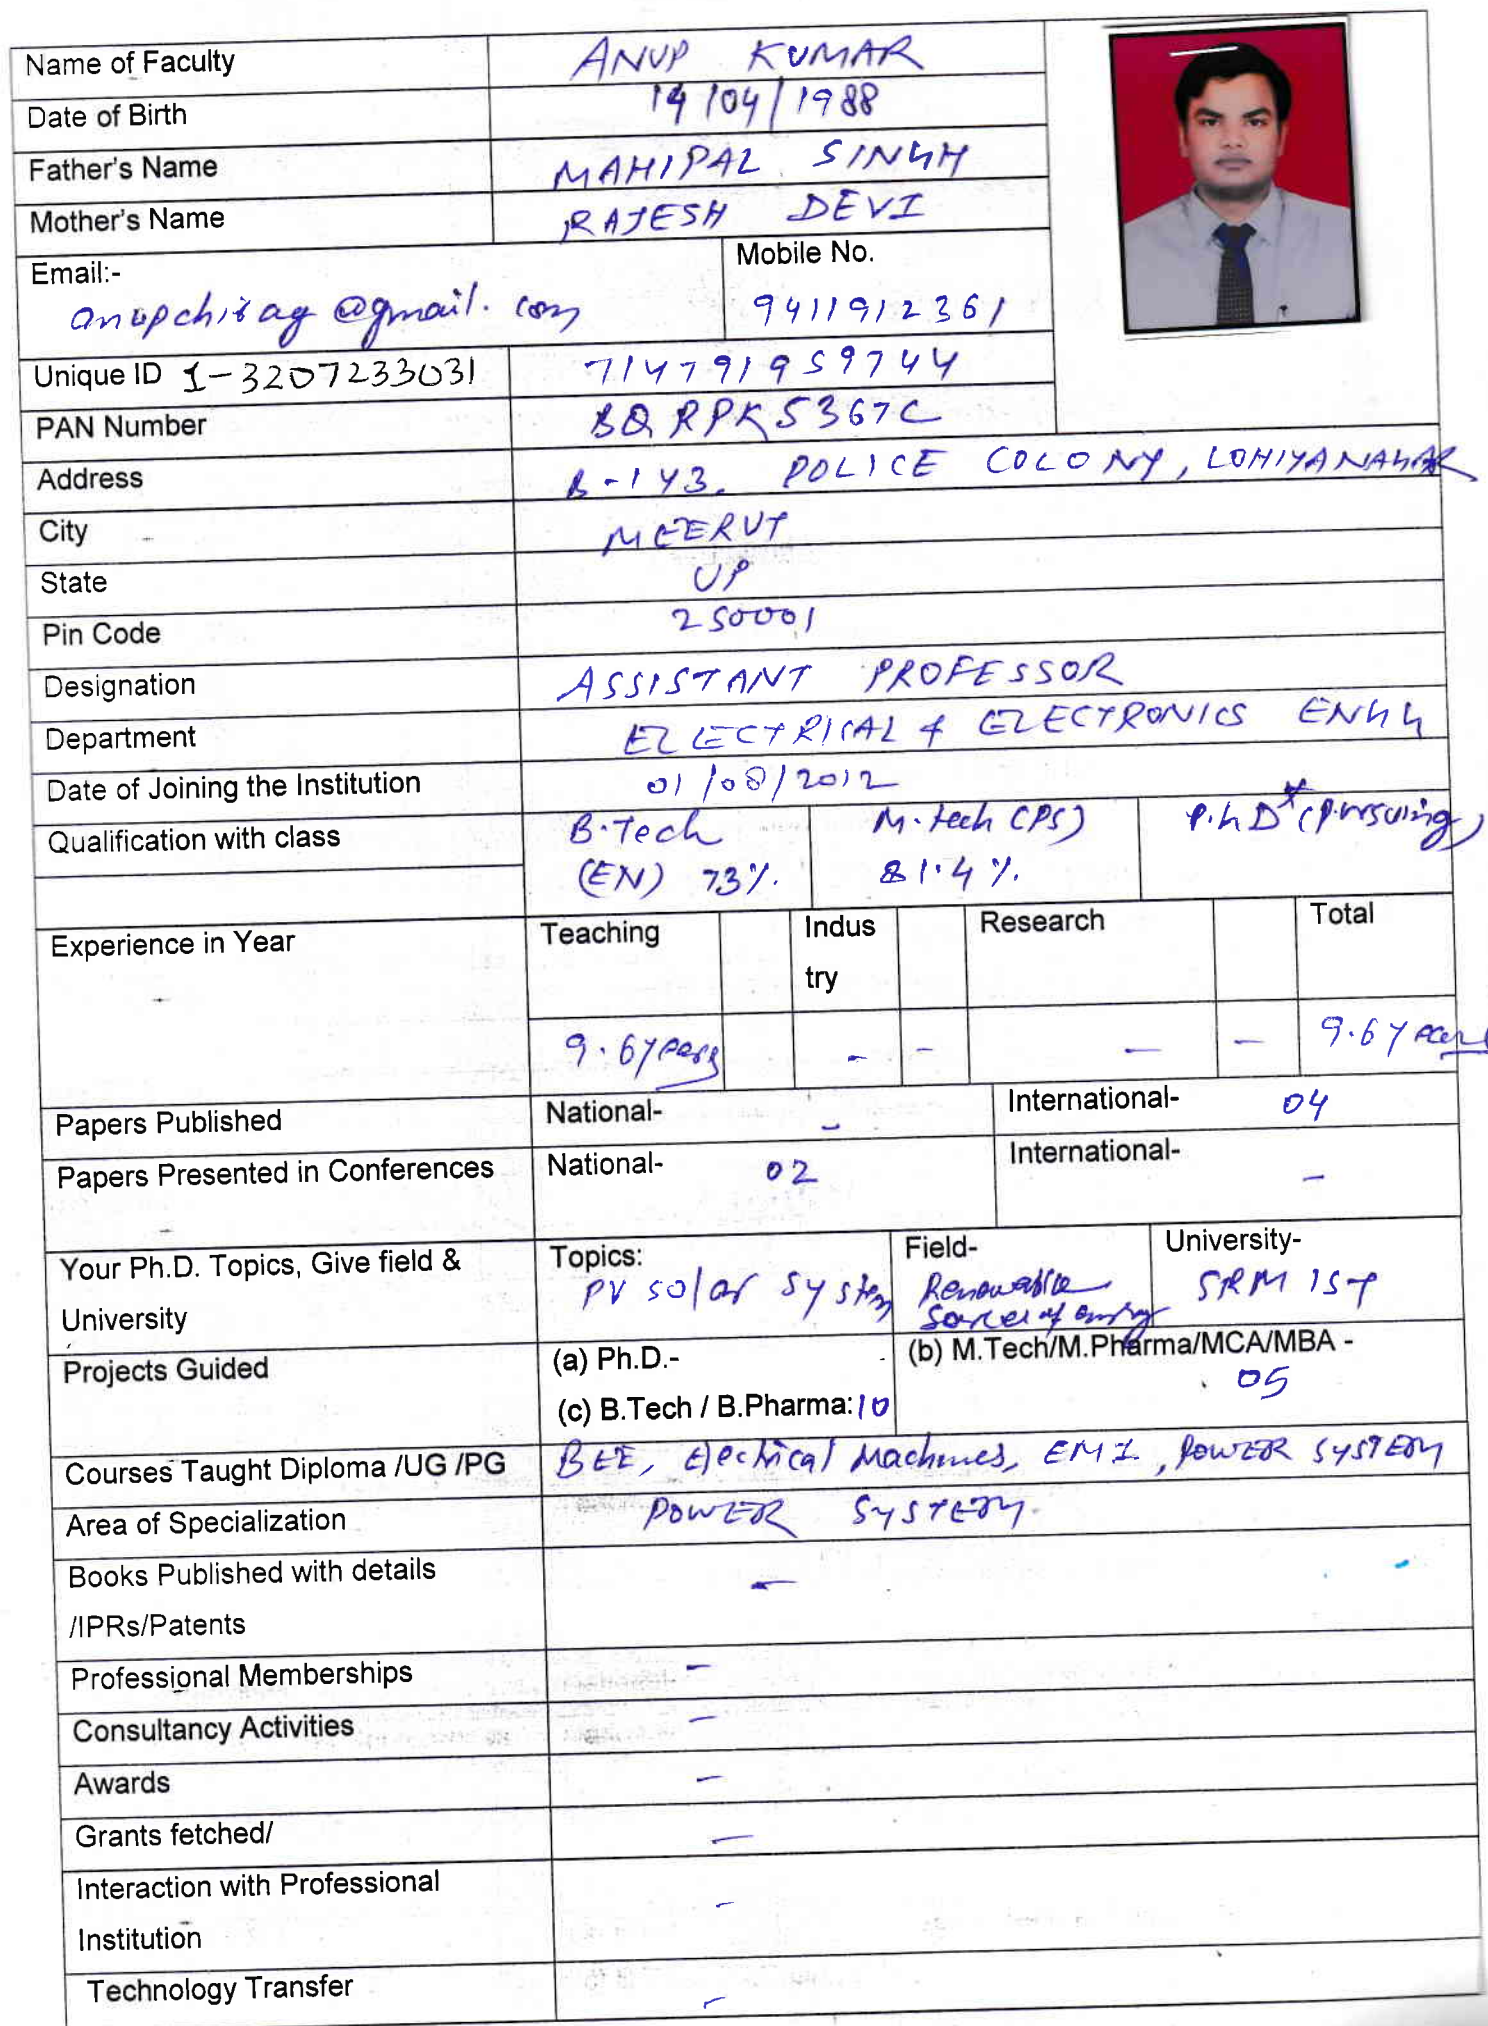 Name of Faculty ANUP KUMAR
Date of Birth 14/04/1988
Father's Name MAHIPAL SINGH
Mother's Name RAJESH DEVI
Email:- Mobile No.
anupchirag@gmail.com 9411912361
Unique ID 1-3207233031 714791959744
PAN Number BQRPK5367C
Address B-143, POLICE COLONY, LOHIYANAGAR
City MEERUT
State UP
Pin Code 250001
Designation ASSISTANT PROFESSOR
Department ELECTRICAL & ELECTRONICS ENGG
Date of Joining the Institution 01/08/2012
Qualification with class B.Tech M.tech (PS) P.hD* (pursuing)
(EN) 73%. 81.4%.
Experience in Year Teaching Indus Research Total
try
9.6 years - - - - 9.6 years
Papers Published National- - International- 04
Papers Presented in Conferences National- 02 International- -
Your Ph.D. Topics, Give field & Topics: Field- University-
University PV solar system Renewable SRM IST
Sources of energy
Projects Guided (a) Ph.D.- - (b) M.Tech/M.Pharma/MCA/MBA -
(c) B.Tech / B.Pharma: 10 05
Courses Taught Diploma /UG /PG BEE, Electrical Machines, EMI, POWER SYSTEM
Area of Specialization POWER SYSTEM.
Books Published with details -
/IPRs/Patents
Professional Memberships -
Consultancy Activities -
Awards -
Grants fetched/ -
Interaction with Professional -
Institution
Technology Transfer -